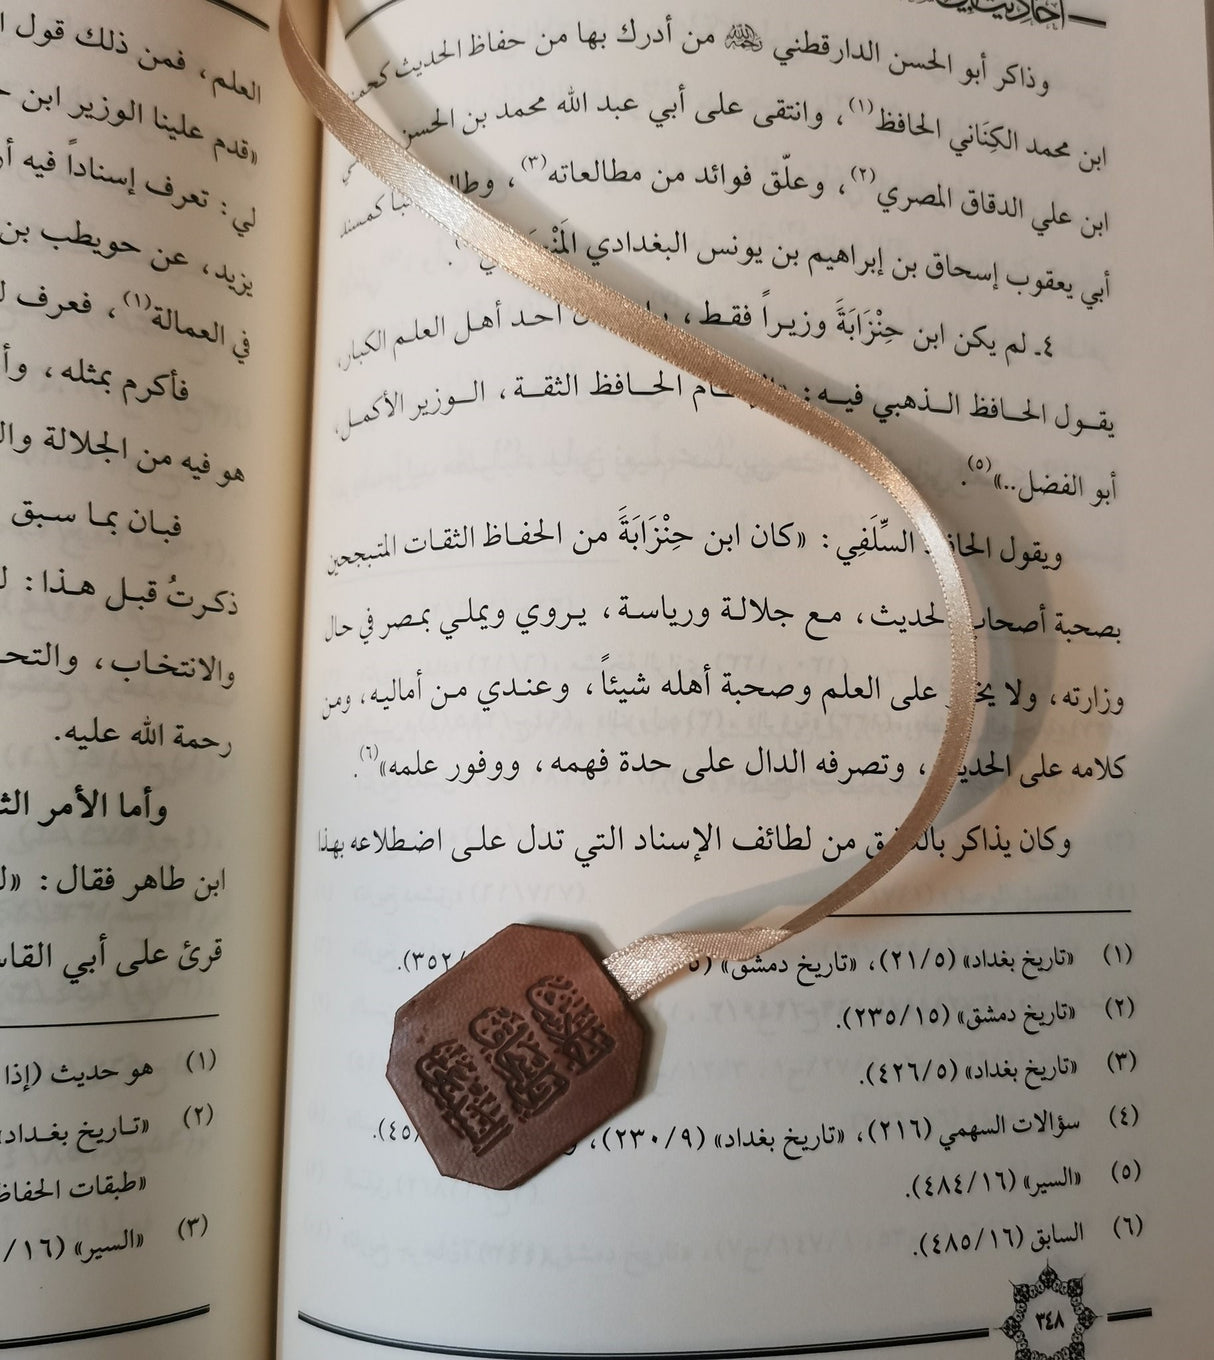 أحاديث
وذاكر أبو الحسن الدارقطني ﷺ من أدرك بها من حفاظ الحديث كحمزة
ابن محمد الكِنَاني الحافظ(١)، وانتقى على أبي عبد الله محمد بن الحسن
ابن علي الدقاق المصري(٢)، وعلّق فوائد من مطالعاته(٣)، كمسند
أبي يعقوب إسحاق بن إبراهيم بن يونس البغدادي
٤ـ لم يكن ابن حِنْزَابَةَ وزيراً فقط، أحد أهل العلم الكبار،
يقول الحافظ الذهبي فيه: الحافظ الثقة، الوزير الأكمل،
أبو الفضل..»(٥).
ويقول الحافظ السِّلَفِي: «كان ابن حِنْزَابَةَ من الحفاظ الثقات المتبجحين
بصحبة أصحاب الحديث، مع جلالة ورياسة، يروي ويملي بمصر في حال
وزارته، ولا على العلم وصحبة أهله شيئاً، وعندي من أماليه، ومن
كلامه على الحديث، وتصرفه الدال على حدة فهمه، ووفور علمه»(٦).
وكان يذاكر من لطائف الإسناد التي تدل على اضطلاعه بهذا
(١) «تاريخ بغداد» (٥/٢١)، «تاريخ دمشق» /٣٥٢).
(٢) «تاريخ دمشق» (١٥/٢٣٥).
(٣) «تاريخ بغداد» (٥/٤٢٦).
(٤) سؤالات السهمي (٢١٦)، «تاريخ بغداد» (٩/٢٣٠)، /٤٥).
(٥) «السير» (١٦/٤٨٤).
(٦) السابق (١٦/٤٨٥).
٣٤٨
العلم، فمن ذلك قول
«قدم علينا الوزير ابن
لي: تعرف إسناداً فيه
يزيد، عن حويطب بن
في العمالة(١)، فعرف
فأكرم بمثله،
هو فيه من الجلالة
فبان بما سبق
ذكرتُ قبل هذا:
والانتخاب،
رحمة الله عليه.
وأما الأمر
ابن طاهر فقال:
قرئ على أبي
(١) هو حديث (إذا
(٢) «تاريخ بغداد»
«طبقات الحفاظ
(٣) «السير» (١٦/